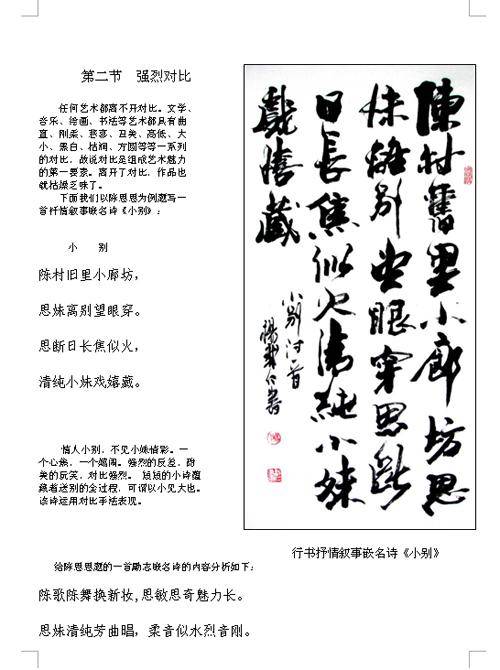 第二节 强烈对比
任何艺术都离不开对比。文学、
音乐、绘画、书法等艺术都具有曲
直、刚柔、悲喜、丑美、高低、大
小、黑白、枯润、方圆等等一系列
的对比，故说对比是组成艺术魅力
的第一要素。离开了对比，作品也
就枯燥乏味了。
下面我们以陈思思为例题写一
首抒情叙事嵌名诗《小别》：
小 别
陈村旧里小廊坊，
思妹离别望眼穿。
思断日长焦似火，
清纯小妹戏嬉藏。
情人小别，不见小妹倩影。一
个心焦，一个嬉闹。强烈的反差，甜
美的玩笑，对比强烈。短短的小诗蕴
藏着送别的全过程，可谓以小见大也。
该诗运用对比手法表现。
陳村舊里小廊坊思
妹離别望眼穿思断
日長焦似火清純小妹
戲嬉藏
小别诗一首
行书抒情叙事嵌名诗《小别》
给陈思思题的一首励志嵌名诗的内容分析如下：
陈歌陈舞换新妆,思敏思奇魅力长。
思妹清纯芳曲唱，柔音似水烈音刚。